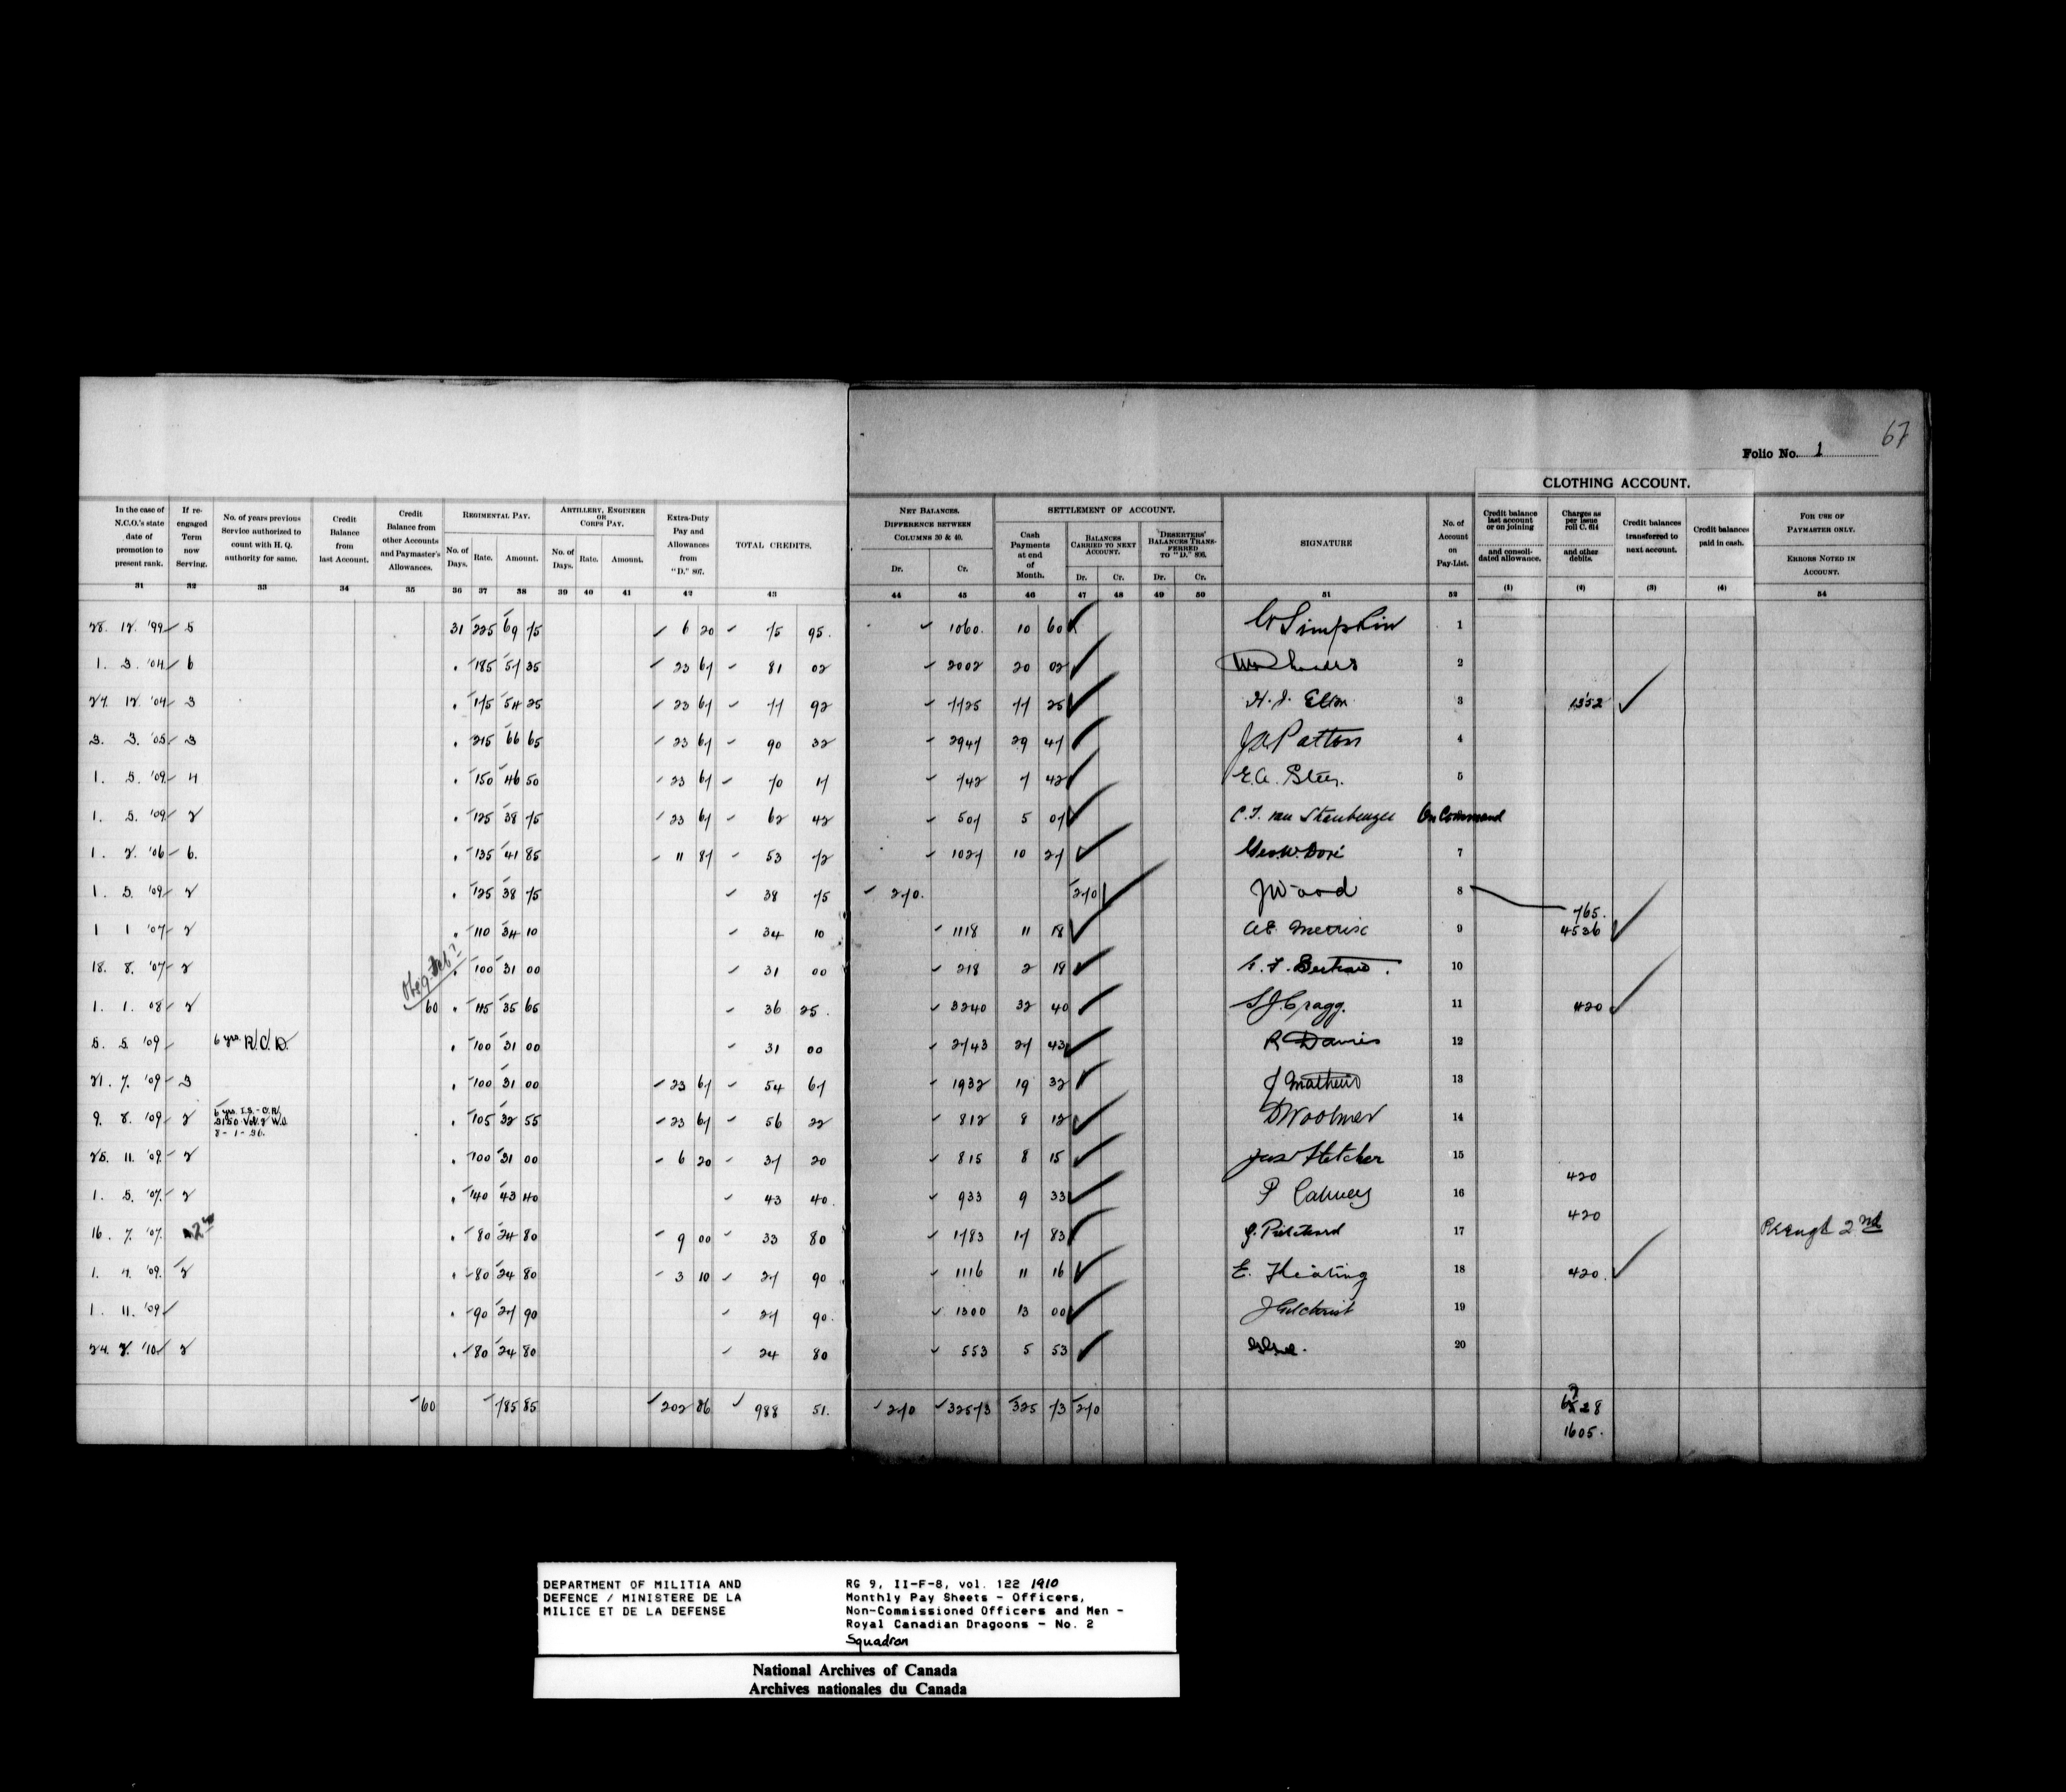 67
Folio No. 1
CLOTHING ACCOUNT.
In the case of N.C.O.'s state date of promotion to present rank.
If re-engaged Term now Serving.
No. of years previous Service authorized to count with H. Q. authority for same.
Credit Balance from last Account.
Credit Balance from other Accounts and Paymaster's Allowances.
REGIMENTAL PAY.
No. of Days.
Rate.
Amount.
ARTILLERY, ENGINEER OR CORPS PAY.
No. of Days.
Rate.
Amount.
Extra-Duty Pay and Allowances from "D." 807.
TOTAL CREDITS.
NET BALANCES.
DIFFERENCE BETWEEN COLUMNS 30 & 40.
Dr.
Cr.
SETTLEMENT OF ACCOUNT.
Cash Payments at end of Month.
BALANCES CARRIED TO NEXT ACCOUNT.
Dr.
Cr.
DESERTERS' BALANCES TRANSFERRED TO "D." 806.
Dr.
Cr.
SIGNATURE
No. of Account on Pay-List.
Credit balance last account or on joining and consolidated allowance.
Charges as per issue roll C. 614 and other debits.
Credit balances transferred to next account.
Credit balances paid in cash.
FOR USE OF PAYMASTER ONLY.
ERRORS NOTED IN ACCOUNT.
31 32 33 34 35 36 37 38 39 40 41 42 43 44 45 46 47 48 49 50 51 52 (1) (2) (3) (4) 54
28. 12. '99 5 31 225 69 75 6 20 75 95. 1060. 10 60 W Simpkin 1
1. 3. '04 6 " 185 57 35 23 67 81 02 2002 20 02 2
27. 12. '04 3 " 175 54 25 23 67 77 92 1125 11 25 3 1352
3. 3. '05 3 " 215 66 65 23 67 90 32 2947 29 47 J A Patton 4
1. 5. '09 4 " 150 46 50 23 67 70 17 742 7 42 E.A. Steer. 5
1. 5. '09 2 " 125 38 75 23 67 62 42 507 5 07 On Command
1. 2. '06 6. " 135 41 85 11 87 53 72 1027 10 27 Geo. W. Doré 7
1. 5. '09 2 " 125 38 75 38 75 270. 270 J Wood 8 765.
1 1 '07 2 " 110 34 10 34 10 1118 11 18 9 4536
18. 8. '07 2 " 100 31 00 31 00 218 2 18 10
1. 1. 08 2 60 " 115 35 65 36 25. 3240 32 40 S J Cragg. 11 420
5. 5. '09 6 yrs. R.C.D. " 100 31 00 31 00 2743 27 43 R Davies 12
21. 7. '09 3 " 100 31 00 23 67 54 67 1932 19 32 13
9. 8. '09 2 " 105 32 55 23 67 56 22 812 8 12 D Woolmer 14
25. 11. '09 2 " 100 31 00 6 20 37 20 815 8 15 Jas Fletcher 15
1. 5. '07. 2 " 140 43 40 43 40. 933 9 33 16 420
16. 7. '07. " 80 24 80 9 00 33 80 1783 17 83 G. Pritchard 17 420 2nd
1. 7. '09. 2 " 80 24 80 3 10 27 90 1116 11 16 18 420.
1. 11. '09 " 90 27 90 27 90. 1300 13 00 J Gilchrist 19
24. 2. '10 2 " 80 24 80 24 80 553 5 53 20
60 785 85 202 06 988 51. 270 32573 325 73 270
1605.
DEPARTMENT OF MILITIA AND
DEFENCE / MINISTERE DE LA
MILICE ET DE LA DEFENSE
RG 9, II-F-8, vol. 122 1910
Monthly Pay Sheets - Officers,
Non-Commissioned Officers and Men -
Royal Canadian Dragoons - No. 2
Squadron
National Archives of Canada
Archives nationales du Canada